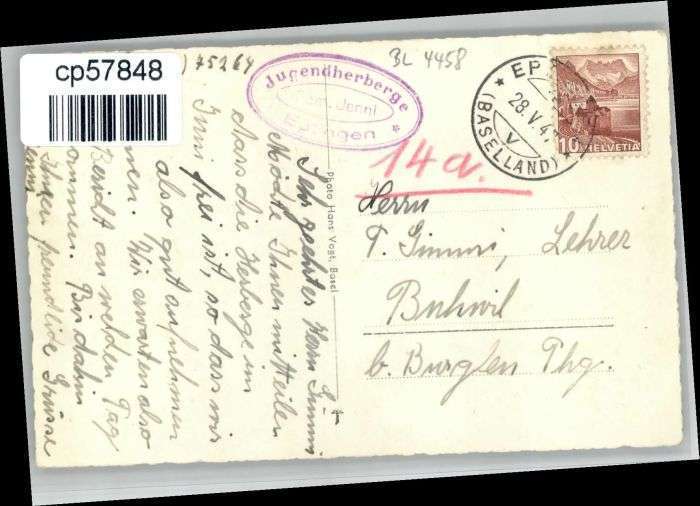 cp57848
75264
BL 4458
Jugendherberge
Jenni
EP
28.V.4
(BASELLAND)
V
10 HELVETIA
14a.
Herrn
F. Gimmi, Lehrer
Buhwil
b. Burglen Thg.
Photo Hans Vogt, Basel
Sehr geehrter Herr Gimmi
Möchte Ihnen mitteilen
dass die Herberge im
Juni frei ist, so dass wir
also gut aufnehmen
Wir erwarten also
Bericht an welchen Tag
kommen. Bis dahin
freundliche Grüsse